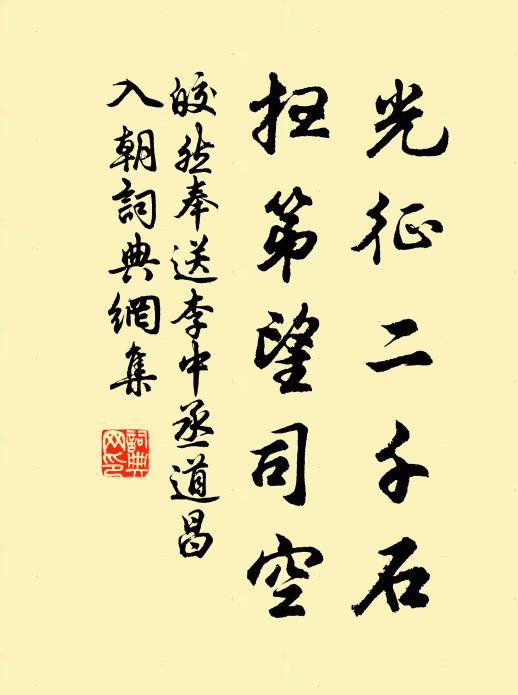 光征二千石
扫第望司空
皎然奉送李中丞道昌
入朝詞典網集
詞典網印